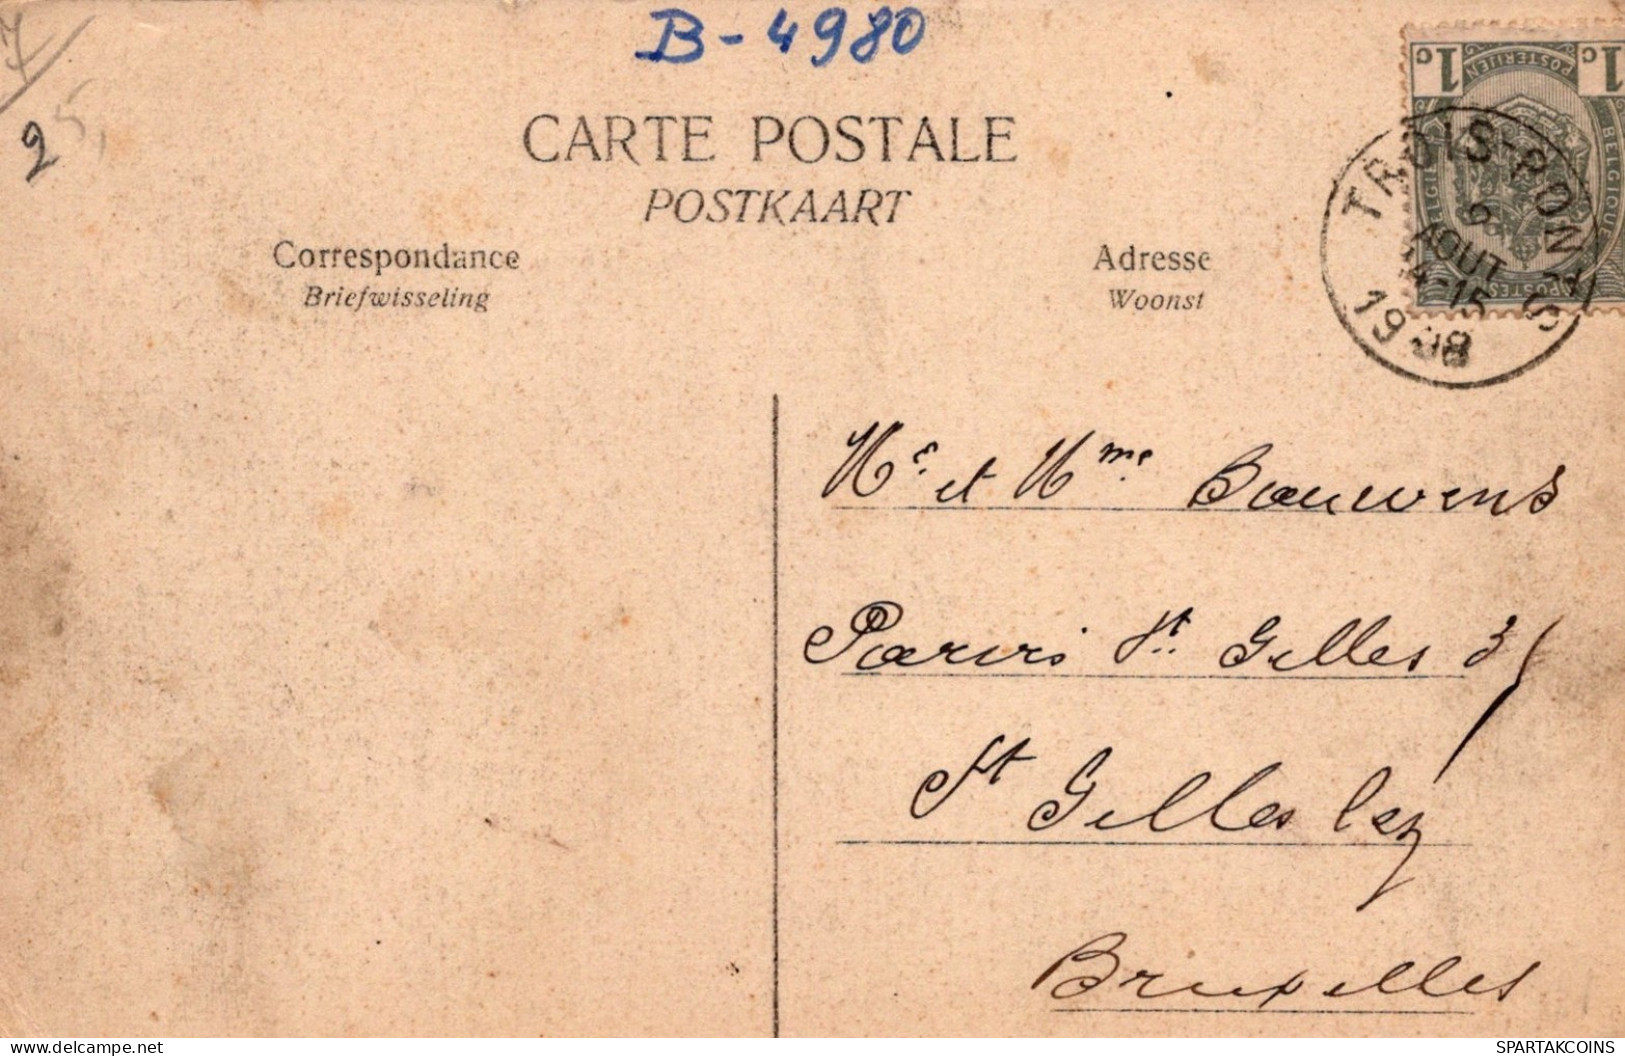 B-4980
7
25,
CARTE POSTALE
POSTKAART
Correspondance
Briefwisseling
Adresse
Woonst
1c 1c
POSTERIJEN
BELGIE BELGIQUE
POSTES
TROIS-PONTS
AOUT
14-15
1908
Mr. et Mme. Bauwens
Parvis St. Gilles 3
St Gilles lez
Bruxelles
https://www.ma-shops.com/spartakcoins/
SPARTAKCOINS